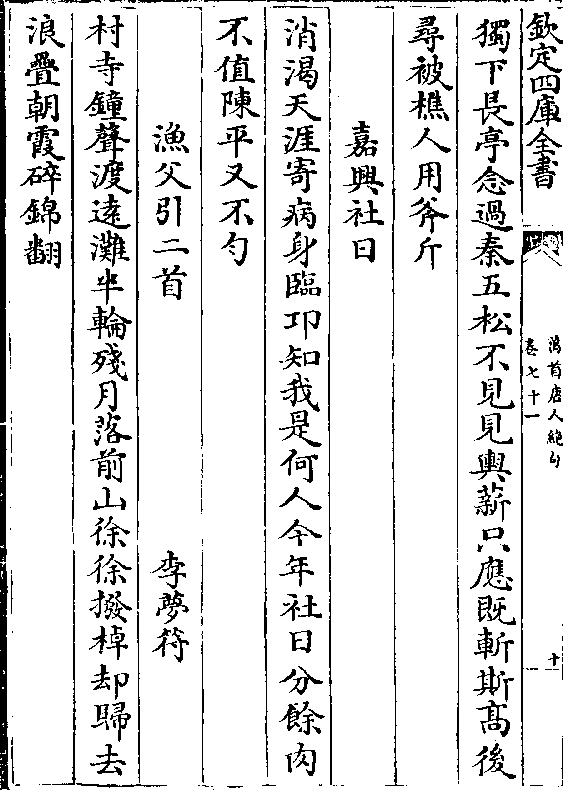 欽定四庫全書
萬首唐人絶句
卷七十一
十
獨下長亭念過秦五松不見見輿薪只應既斬斯髙後
尋被樵人用斧斤
嘉興社日
消渴天涯寄病身臨邛知我是何人今年社日分餘肉
不值陳平又不勻
漁父引二首
李夢符
村寺鐘聲渡逺灘半輪殘月落前山徐徐撥棹却歸去
浪疊朝霞碎錦翻